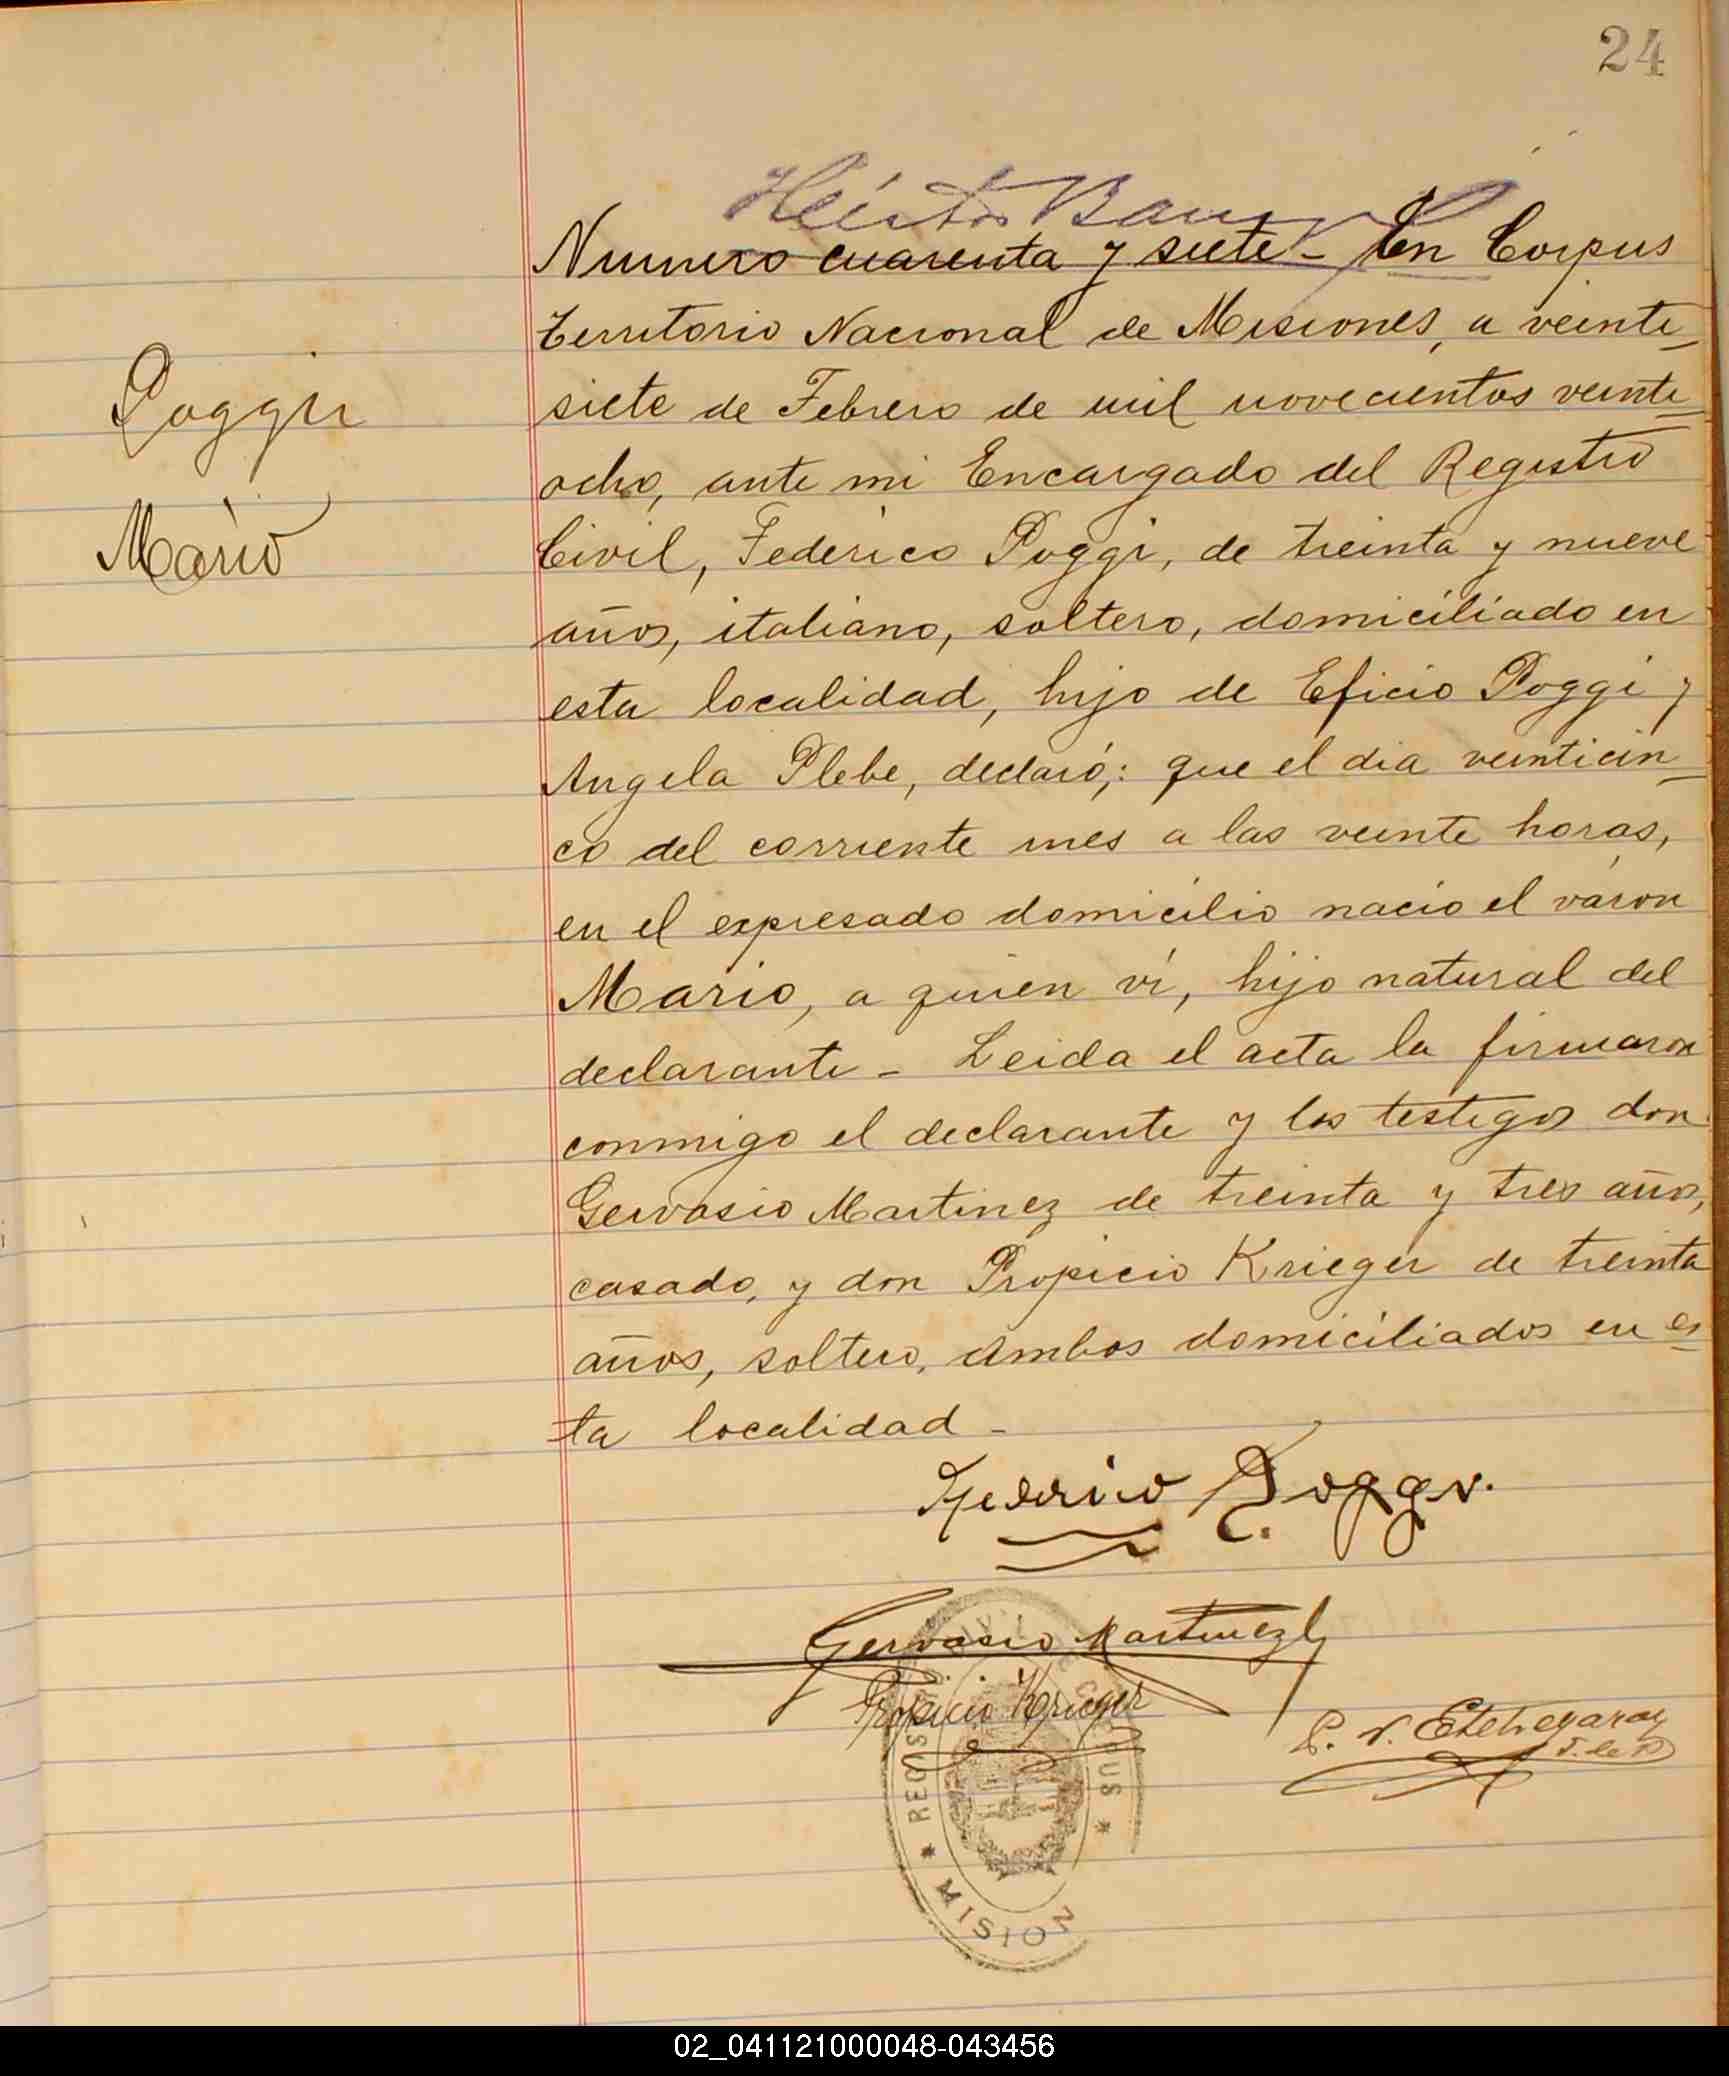 24
Héctor
Numero cuarenta y siete - En Corpus
Territorio Nacional de Misiones, a veinti_
siete de Febrero de mil novecientos veinti_
ocho, ante mi Encargado del Registro
Civil, Federico Poggi, de treinta y nueve
años, italiano, soltero, domiciliado en
esta localidad, hijo de Eficio Poggi y
Angela Plebe, declaró; que el dia veinticin_
co del corriente mes a las veinte horas,
en el expresado domicilio nacio el varon
Mario, a quien ví, hijo natural del
declarante - Leida el acta la firmaron
conmigo el declarante y los testigos don
Gervasio Martinez de treinta y tres años,
casado, y don Propicio Krieger de treinta
años, soltero, ambos domiciliados en es_
ta localidad -
Poggi
Mario
Federico Poggi.
Gervasio Martinez
Propicio Krieger
P. V. Etchegaray
J. de P
REGISTRO CIVIL CORPUS * MISION
02_041121000048-043456